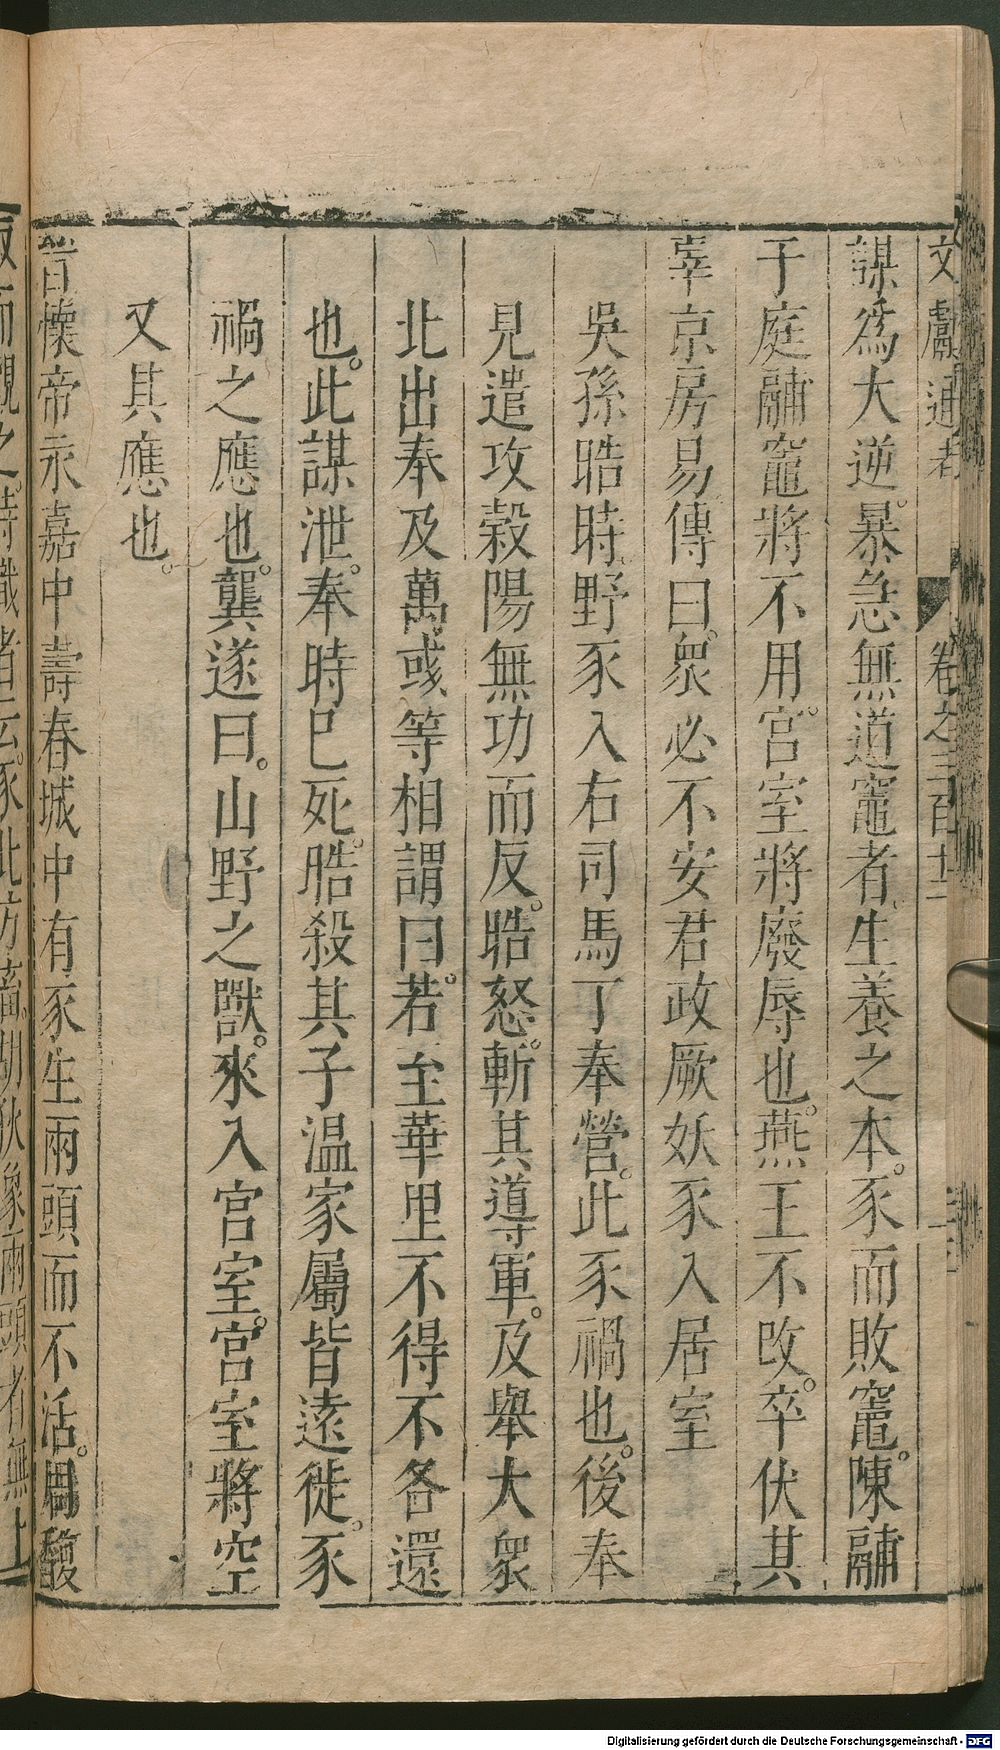 文獻通考 卷之三百十二
謀爲大逆。暴急無道竈者。生養之本。豕而敗竈。陳鬴
于庭鬴竈將不用。宮室將廢辱也。燕王不改。卒伏其
辜京房易傳曰。衆必不安君政厥妖豕入居室
吳孫晧時。野豕入右司馬丁奉營。此豕禍也。後奉
見遣攻穀陽無功而反。晧怒。斬其導軍。及舉大衆
北出奉及萬彧等相謂曰。若至華里不得不各還
也。此謀泄。奉時巳死。晧殺其子温家屬皆遠徙。豕
禍之應也。龔遂曰。山野之獸。來入宮室。宮室將空
又其應也。
晉懷帝永嘉中壽春城中有豕生兩頭而不活。周馥
取而觀之。時識者云。豕北方畜胡狄象兩頭者無上
Digitalisierung gefördert durch die Deutsche Forschungsgemeinschaft - DFG